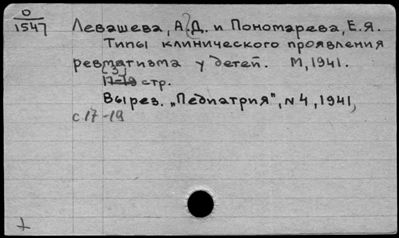 0
1547
Левашева, А.Д. и Пономарева, Е.Я.
Типы клинического проявления
ревматизма у детей. М, 1941.
[3]
17-19 стр.
Вырез. „Педиатрия", N4, 1941,
с 17-19